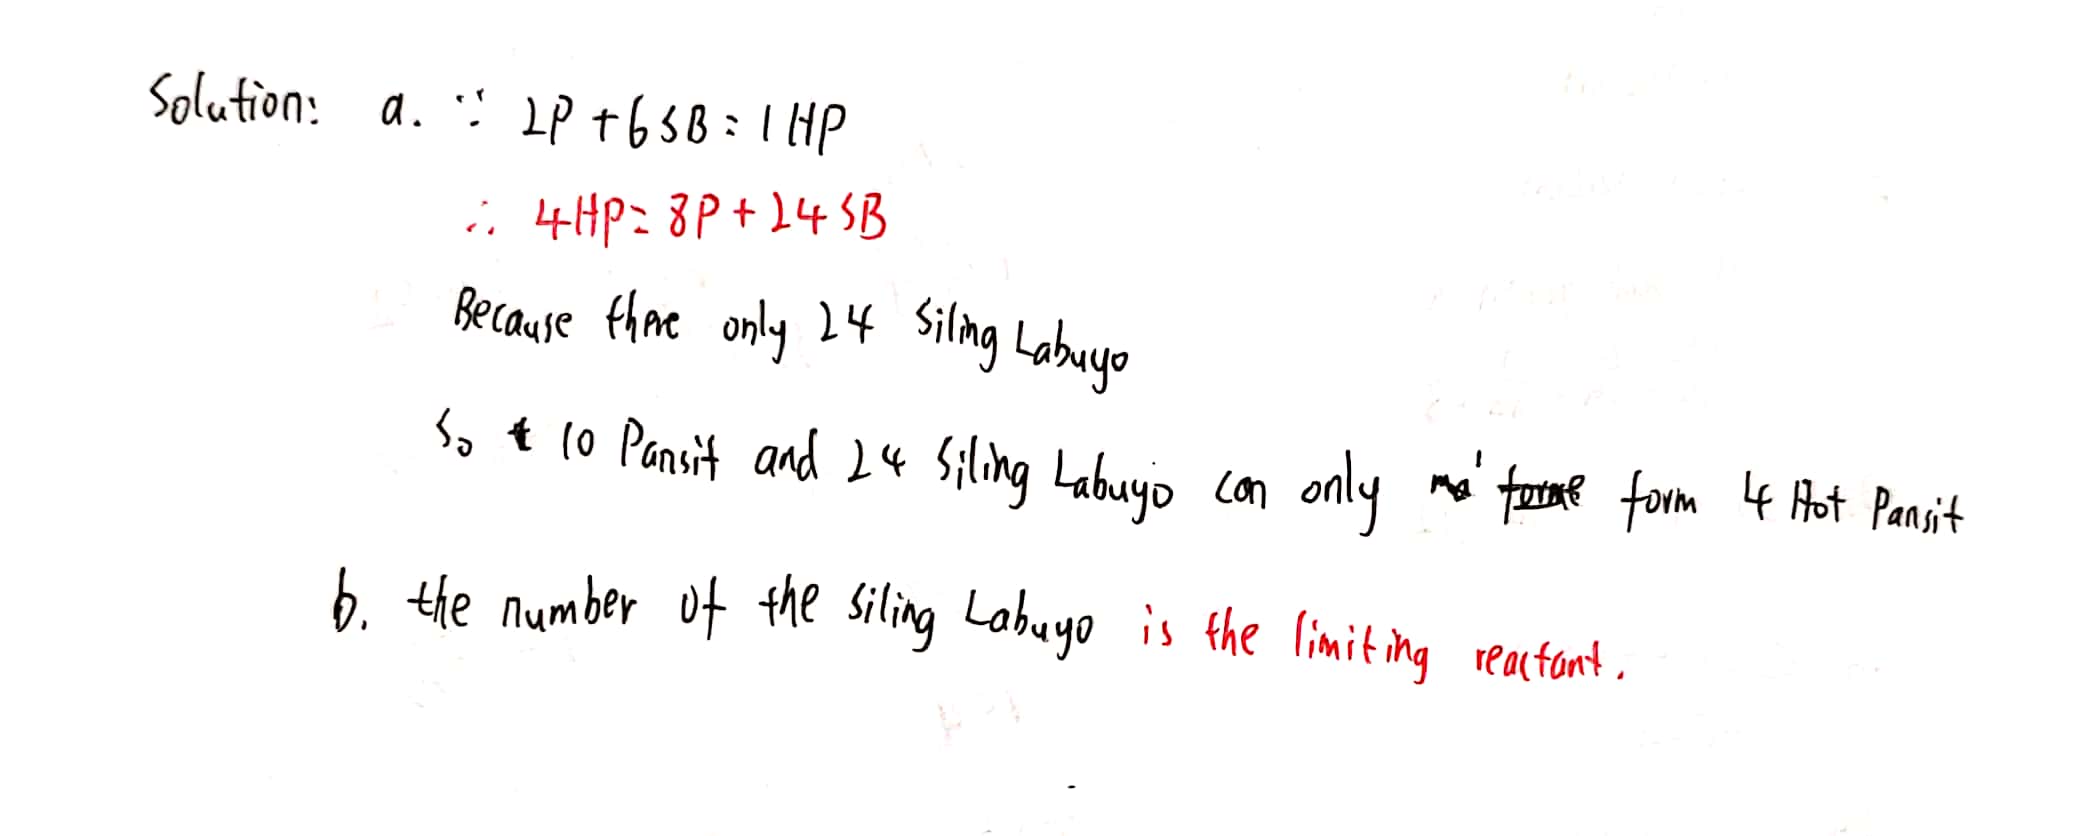 Solution: a. ∵ 2P + 6SB = 1HP
∴ 4HP = 8P + 24SB
Because there only 24 Siling Labuyo
So 10 Pansit and 24 Siling Labuyo can only form 4 Hot Pansit
b. the number of the siling Labuyo is the limiting reactant.